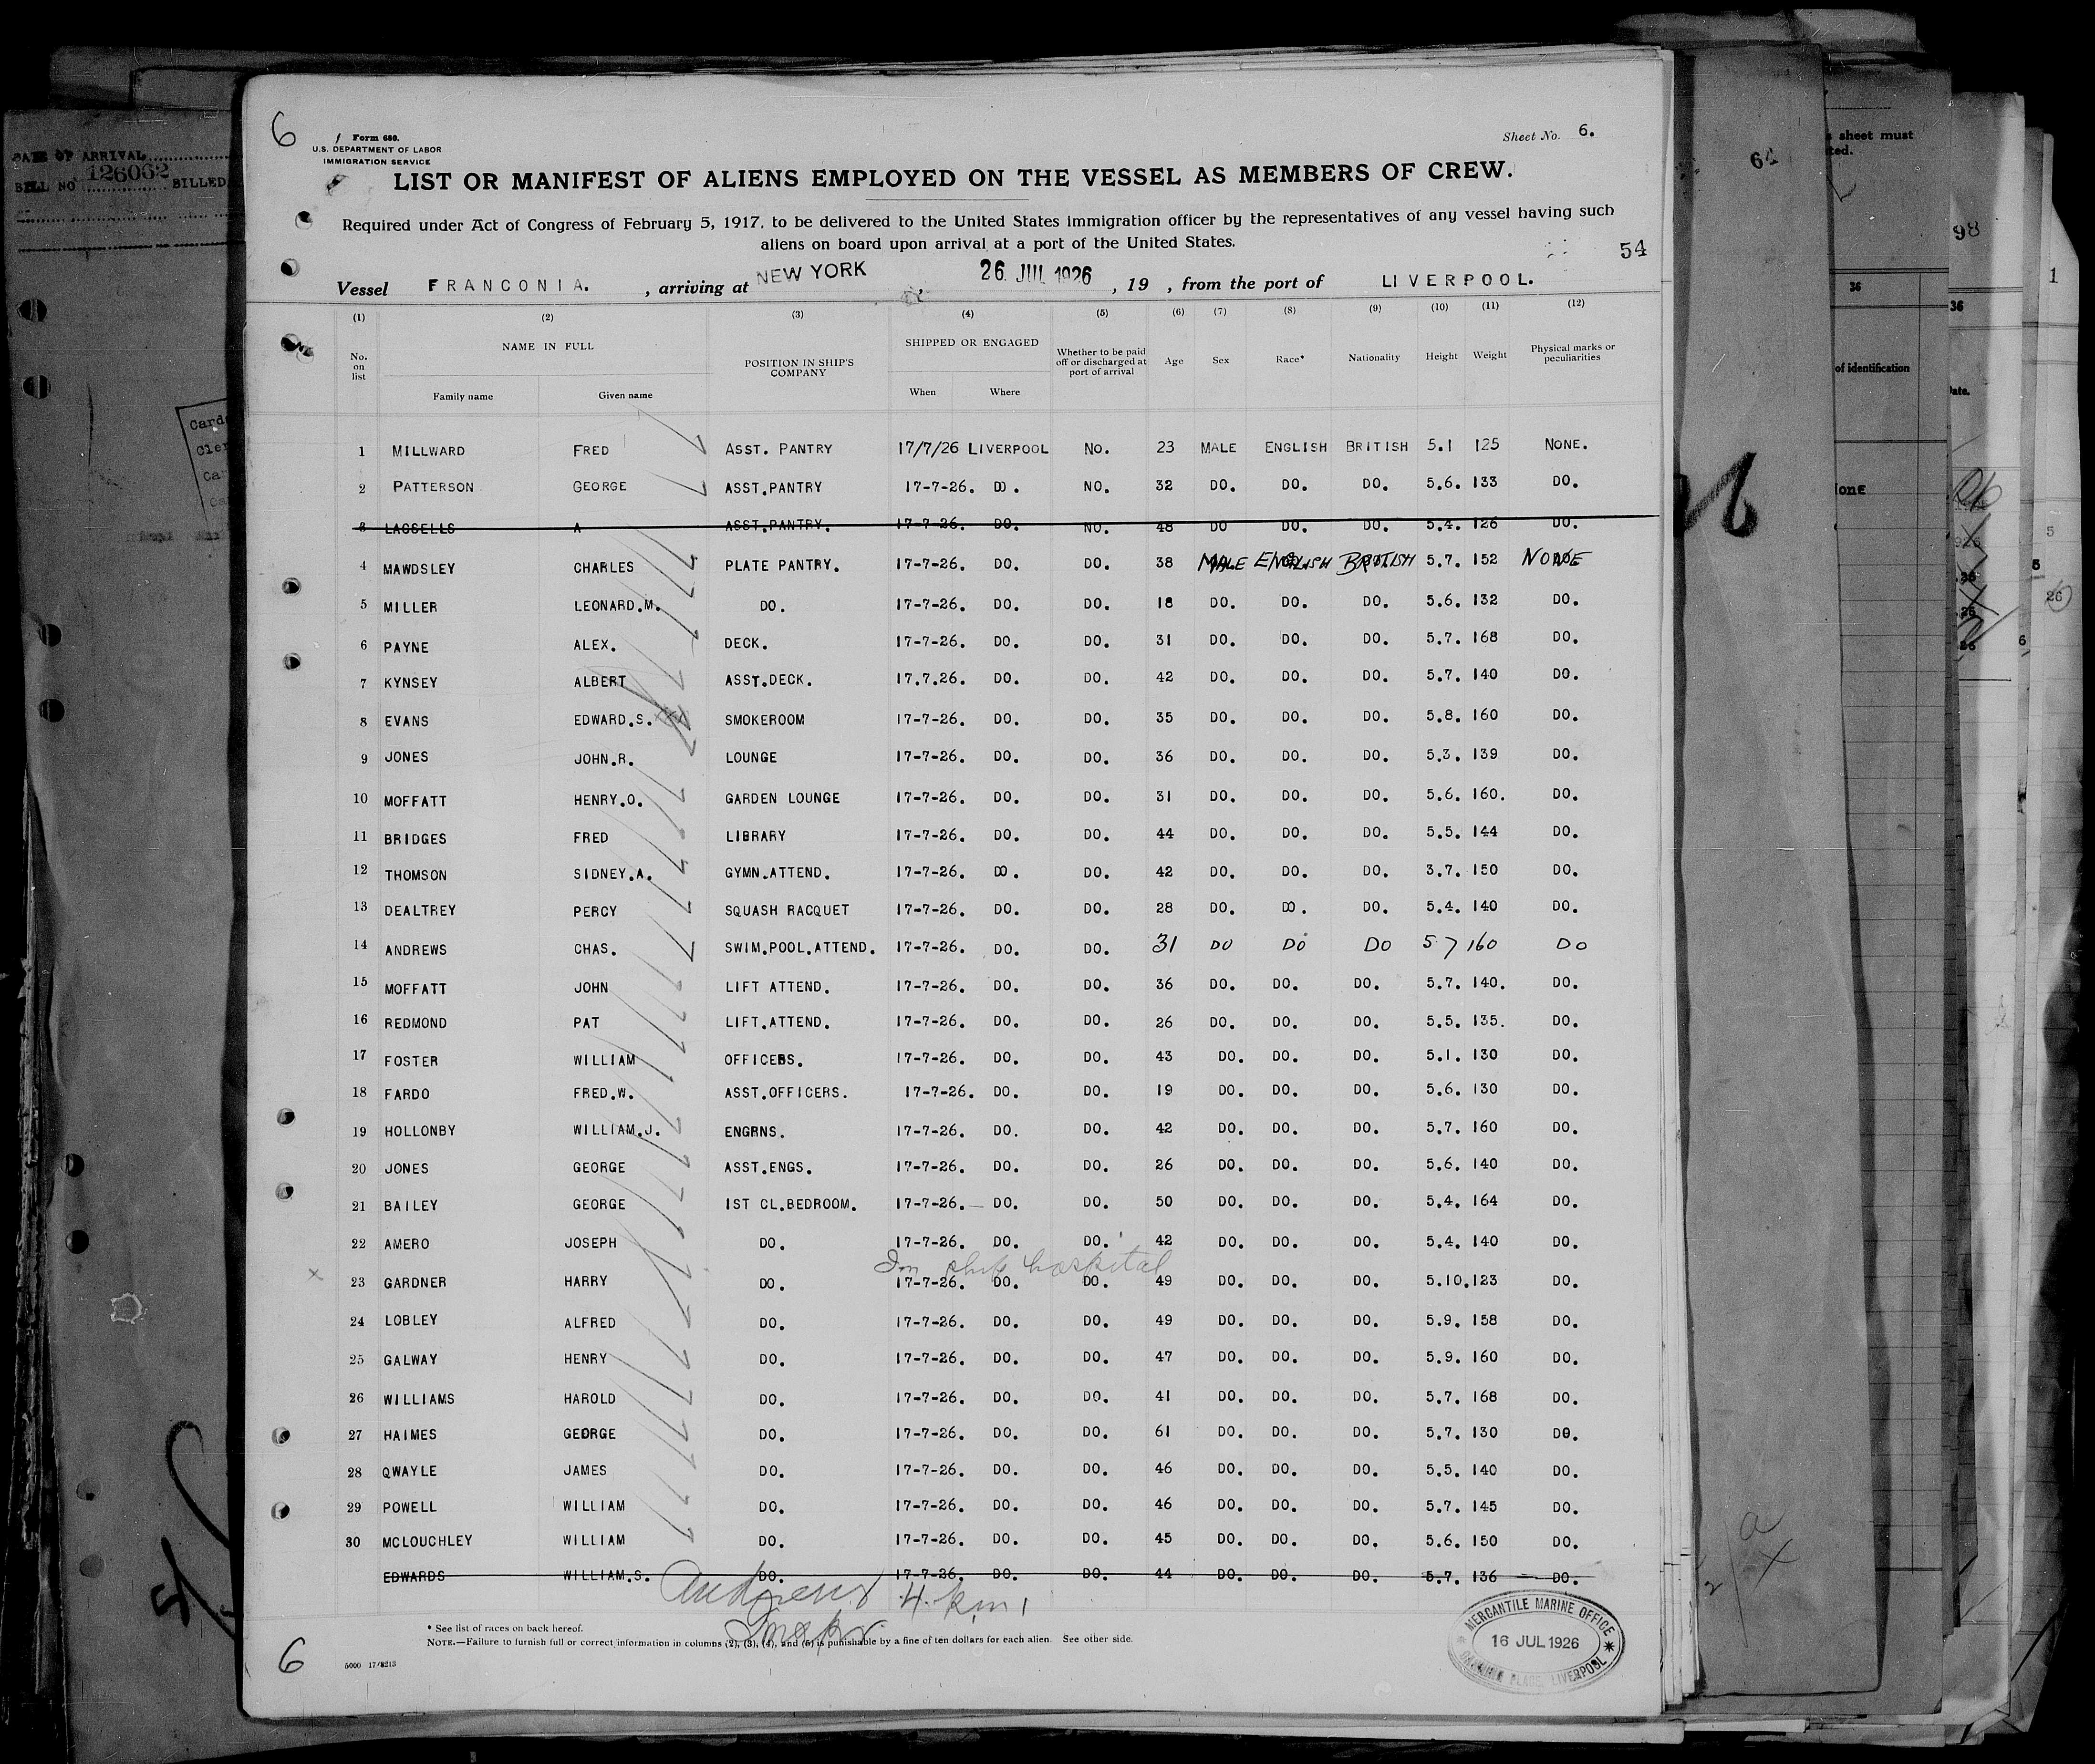 6
Form 680.
U.S. DEPARTMENT OF LABOR
IMMIGRATION SERVICE
Sheet No. 6.
LIST OR MANIFEST OF ALIENS EMPLOYED ON THE VESSEL AS MEMBERS OF CREW.
Required under Act of Congress of February 5, 1917, to be delivered to the United States immigration officer by the representatives of any vessel having such
aliens on board upon arrival at a port of the United States.
54
Vessel FRANCONIA. , arriving at NEW YORK , 26 JUL 1926 , 19 , from the port of LIVERPOOL.
(1) (2) (3) (4) (5) (6) (7) (8) (9) (10) (11) (12)
No. on list NAME IN FULL Family name Given name POSITION IN SHIP'S COMPANY SHIPPED OR ENGAGED When Where Whether to be paid off or discharged at port of arrival Age Sex Race* Nationality Height Weight Physical marks or peculiarities
1 MILLWARD FRED ASST. PANTRY 17/7/26 LIVERPOOL NO. 23 MALE ENGLISH BRITISH 5.1 125 NONE.
2 PATTERSON GEORGE ASST.PANTRY 17-7-26. DO. NO. 32 DO. DO. DO. 5.6. 133 DO.
3 LASSELLS A ASST.PANTRY. 17-7-26. DO. NO. 48 DO DO. DO. 5.4. 126 DO.
4 MAWDSLEY CHARLES PLATE PANTRY. 17-7-26. DO. DO. 38 MALE ENGLISH BRITISH 5.7. 152 NONE
5 MILLER LEONARD.M. DO. 17-7-26. DO. DO. 18 DO. DO. DO. 5.6. 132 DO.
6 PAYNE ALEX. DECK. 17-7-26. DO. DO. 31 DO. DO. DO. 5.7. 168 DO.
7 KYNSEY ALBERT ASST.DECK. 17.7.26. DO. DO. 42 DO. DO. DO. 5.7. 140 DO.
8 EVANS EDWARD.S. SMOKEROOM 17-7-26. DO. DO. 35 DO. DO. DO. 5.8. 160 DO.
9 JONES JOHN.R. LOUNGE 17-7-26. DO. DO. 36 DO. DO. DO. 5.3. 139 DO.
10 MOFFATT HENRY.O. GARDEN LOUNGE 17-7-26. DO. DO. 31 DO. DO. DO. 5.6. 160. DO.
11 BRIDGES FRED LIBRARY 17-7-26. DO. DO. 44 DO. DO. DO. 5.5. 144 DO.
12 THOMSON SIDNEY.A. GYMN.ATTEND. 17-7-26. DO. DO. 42 DO. DO. DO. 3.7. 150 DO.
13 DEALTREY PERCY SQUASH RACQUET 17-7-26. DO. DO. 28 DO. DO. DO. 5.4. 140 DO.
14 ANDREWS CHAS. SWIM.POOL.ATTEND. 17-7-26. DO. DO. 31 DO DO DO 5 7 160 DO
15 MOFFATT JOHN LIFT ATTEND. 17-7-26. DO. DO. 36 DO. DO. DO. 5.7. 140. DO.
16 REDMOND PAT LIFT.ATTEND. 17-7-26. DO. DO. 26 DO. DO. DO. 5.5. 135. DO.
17 FOSTER WILLIAM OFFICERS. 17-7-26. DO. DO. 43 DO. DO. DO. 5.1. 130 DO.
18 FARDO FRED.W. ASST.OFFICERS. 17-7-26. DO. DO. 19 DO. DO. DO. 5.6. 130 DO.
19 HOLLONBY WILLIAM.J. ENGRNS. 17-7-26. DO. DO. 42 DO. DO. DO. 5.7. 160 DO.
20 JONES GEORGE ASST.ENGS. 17-7-26. DO. DO. 26 DO. DO. DO. 5.6. 140 DO.
21 BAILEY GEORGE 1ST CL.BEDROOM. 17-7-26. DO. DO. 50 DO. DO. DO. 5.4. 164 DO.
22 AMERO JOSEPH DO. 17-7-26. DO. DO. 42 DO. DO. DO. 5.4. 140 DO.
In ship hospital
x 23 GARDNER HARRY DO. 17-7-26. DO. DO. 49 DO. DO. DO. 5.10. 123 DO.
24 LOBLEY ALFRED DO. 17-7-26. DO. DO. 49 DO. DO. DO. 5.9. 158 DO.
25 GALWAY HENRY DO. 17-7-26. DO. DO. 47 DO. DO. DO. 5.9. 160 DO.
26 WILLIAMS HAROLD DO. 17-7-26. DO. DO. 41 DO. DO. DO. 5.7. 168 DO.
27 HAIMES GEORGE DO. 17-7-26. DO. DO. 61 DO. DO. DO. 5.7. 130 DO.
28 QWAYLE JAMES DO. 17-7-26. DO. DO. 46 DO. DO. DO. 5.5. 140 DO.
29 POWELL WILLIAM DO. 17-7-26. DO. DO. 46 DO. DO. DO. 5.7. 145 DO.
30 MCLOUCHLEY WILLIAM DO. 17-7-26. DO. DO. 45 DO. DO. DO. 5.6. 150 DO.
EDWARDS WILLIAM.S. DO. 17-7-26. DO. DO. 44 DO. DO. DO. 5.7. 136 DO.
Andrews
* See list of races on back hereof.
NOTE.—Failure to furnish full or correct information in columns (2), (3), (4), and (5) is punishable by a fine of ten dollars for each alien. See other side.
MERCANTILE MARINE OFFICE
16 JUL 1926
LIVERPOOL
6
5000 17/8213
DATE OF ARRIVAL
BILL NO 126062 BILLED
64
sheet must
98
36
36
of identification
Date.